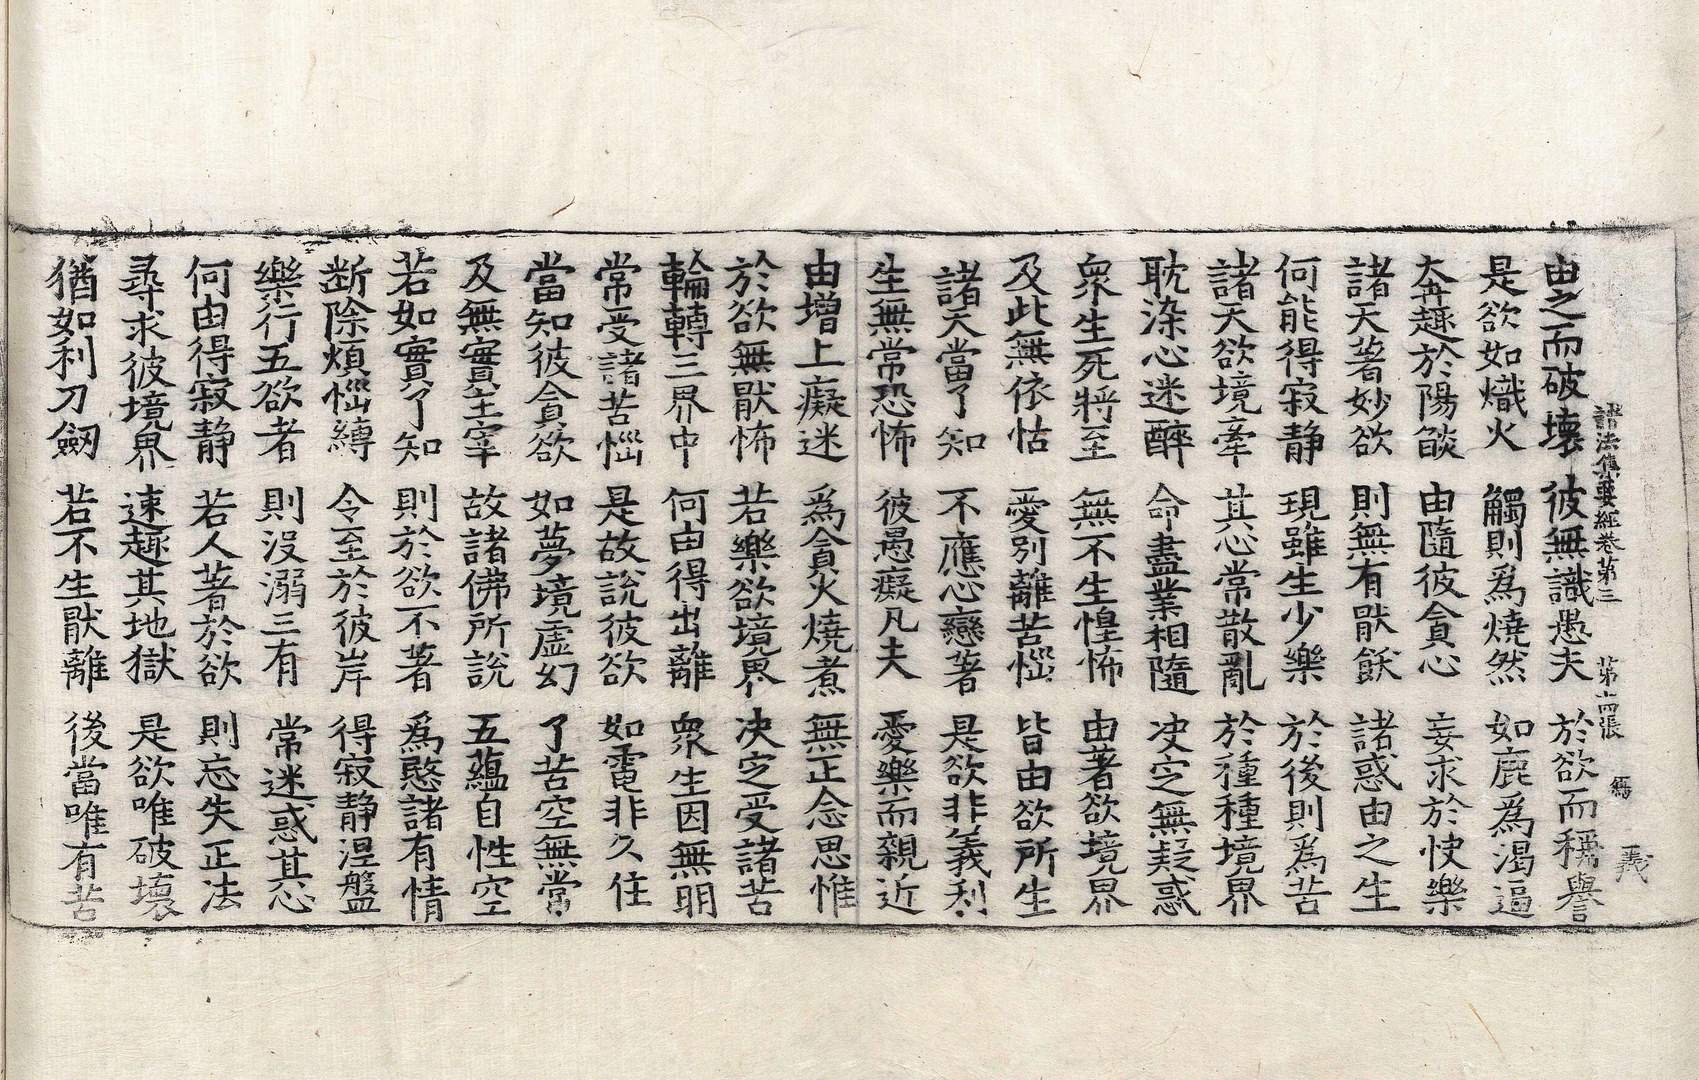 諸法集要經卷第三 第十四張 義
由之而破壞 彼無識愚夫 於欲而稱譽
是欲如熾火 觸則爲燒然 如鹿爲渴逼
奔趣於陽燄 由隨彼貪心 妄求於快樂
諸天著妙欲 則無有猒飫 諸惑由之生
何能得寂静 現雖生少樂 於後則爲苦
諸天欲境牽 其心常散亂 於種種境界
耽染心迷醉 命盡業相隨 决定無疑惑
衆生死將至 無不生惶怖 由著欲境界
及此無依怙 愛別離苦惱 皆由欲所生
諸天當了知 不應心戀著 是欲非義利
生無常恐怖 彼愚癡凡夫 愛樂而親近
由增上癡迷 爲貪火燒煮 無正念思惟
於欲無猒怖 若樂欲境界 决定受諸苦
輪轉三界中 何由得出離 衆生因無明
常受諸苦惱 是故說彼欲 如電非久住
當知彼貪欲 如夢境虛幻 了苦空無常
及無實主宰 故諸佛所說 五蘊自性空
若如實了知 則於欲不著 爲愍諸有情
断除煩惱縛 令至於彼岸 得寂静涅盤
樂行五欲者 則没溺三有 常迷惑其心
何由得寂静 若人著於欲 則忘失正法
尋求彼境界 速趣其地獄 是欲唯破壞
猶如利刀劒 若不生猒離 後當唯有苦